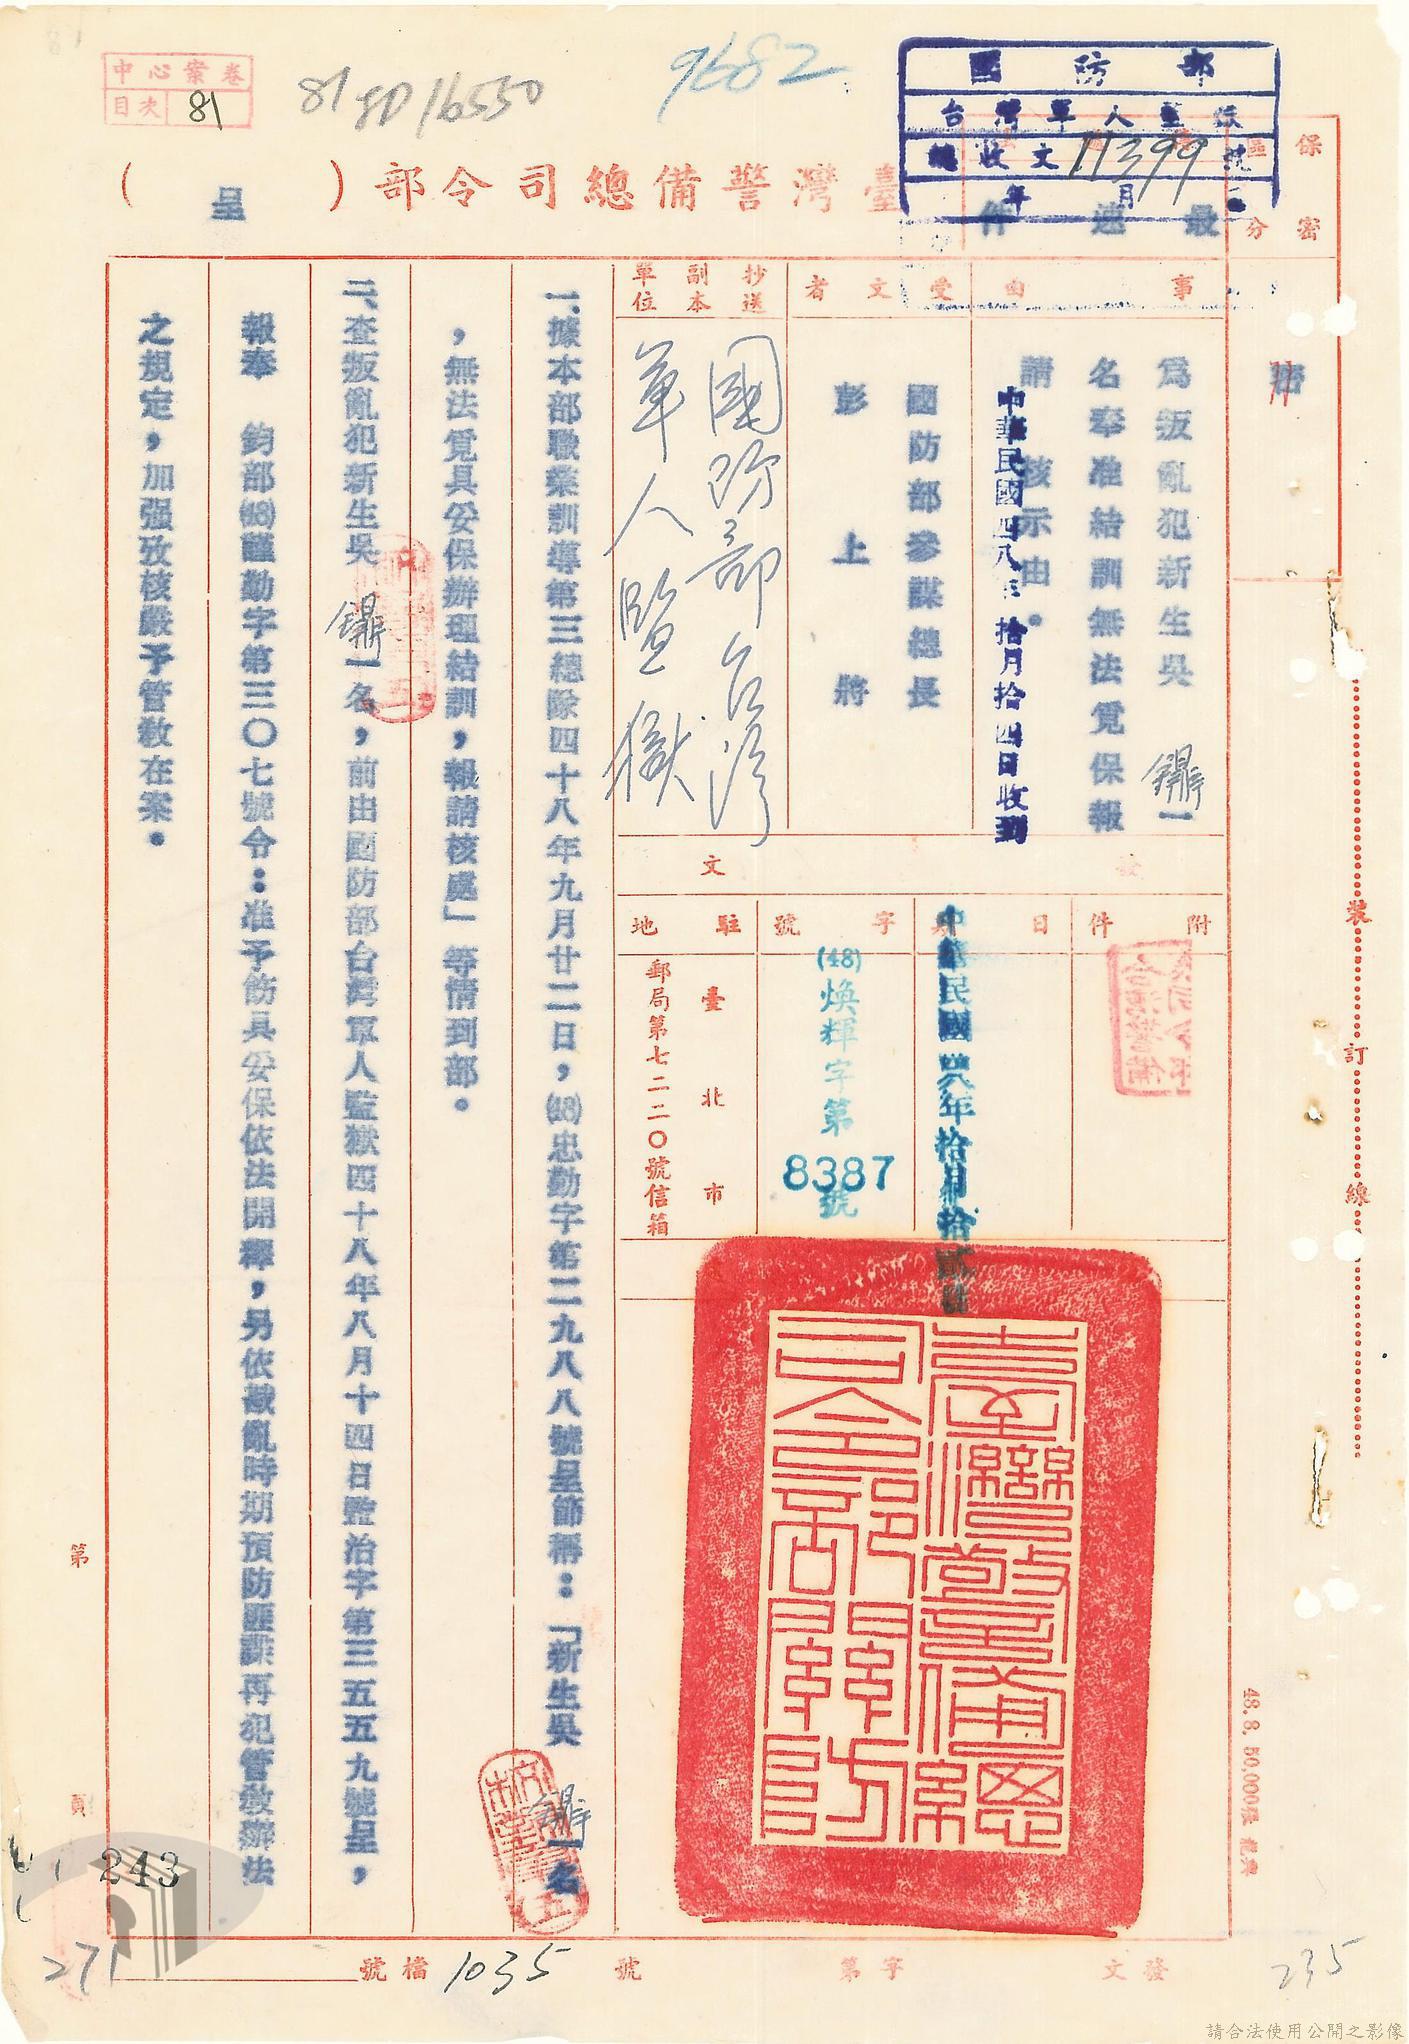 中心案卷
目次 81
81 8D16550
9682
國防部
台灣軍人監獄
總收文11399號
年 月
臺灣警備總司令部（呈）
保密
區分
最速件
事由
為叛亂犯新生吳鼎一
名奉准結訓無法覓保報
請核示由。
中華民國四八年拾月拾四日收到
受文者
國防部參謀總長
彭上將
抄送
副本
單位
國防部台灣
軍人監獄
發文
附件
日期
中華民國四八年拾月拾貳日
字號
(48)煥輝字第
8387
號
駐地
臺北市
郵局第七二二〇號信箱
臺灣警備總
司令部
關防
一、據本部職業訓導第三總隊四十八年九月廿二日，(48)忠勤字第二九八八號呈節稱：「新生吳鼎一名
，無法覓具妥保辦理結訓，報請核處」等情到部。
二、查叛亂犯新生吳鼎一名，前由國防部台灣軍人監獄四十八年八月十四日監治字第三五五九號呈，
報奉　鈞部(48)謹勤字第三〇七號令：准予飭具妥保依法開釋，另依戡亂時期預防匪諜再犯管教辦法
之規定，加强攷核嚴予管教在案。
裝訂線
48.8.50,000張
第 頁
243
271
發文 字第 號
檔號 1035
235
請合法使用公開之影像